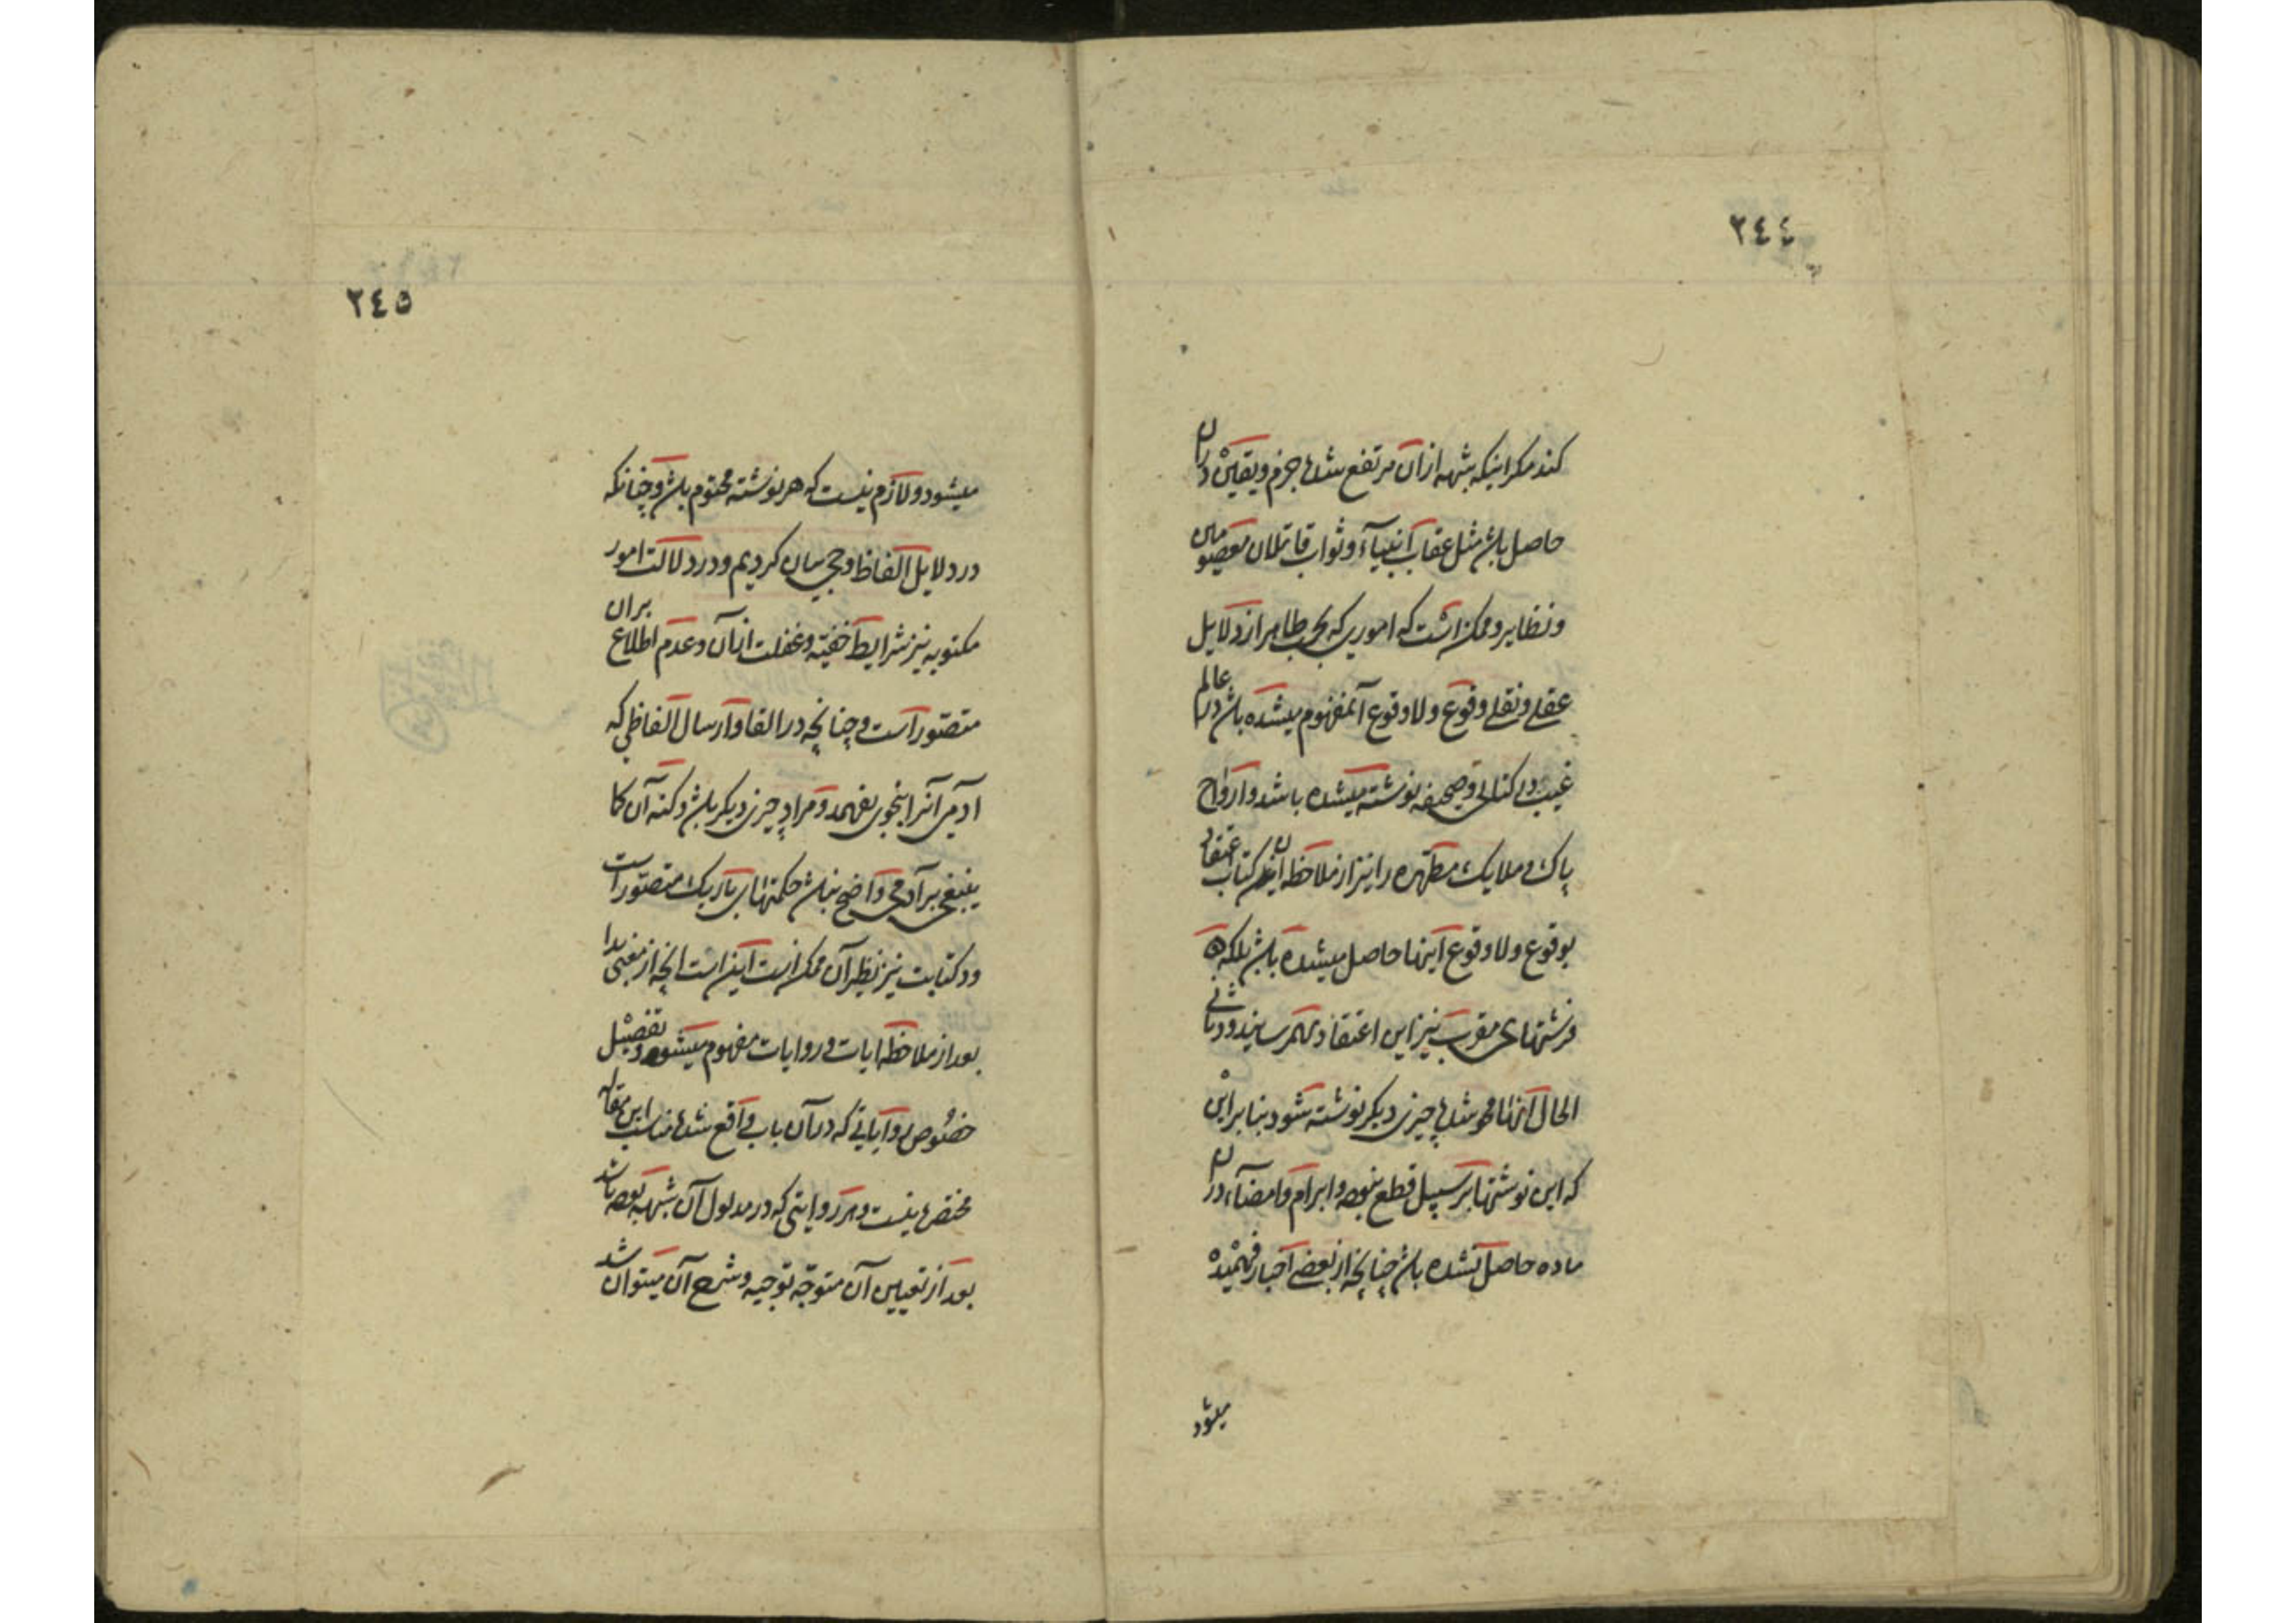 ٢٤٤
کند مکر اینکه شبهه از آن مرتفع شده جزم و یقین در آن
حاصل باشد مثل عقاب انبیآء و ثواب قاتلان معصومین
و نظایر و ممکن است که اموری که بحسب ظاهر از دلایل
عقلی و نقلی وقوع و لا وقوع آن مفهوم میشده باشد در عالم
غیب در کتابی و صحیفه نوشته میشده باشد و ارواح
پاک و ملایک مطهره را نیز از ملاحظه این کتاب اعتقاد
بوقوع و لا وقوع اینها حاصل میشده باشد بلکه
فرشتهای مقرب نیز این اعتقاد بهم رسانیده و در ثانی
الحال آنها محو شده چیزی دیکر نوشته شود بنا بر این
که این نوشتها بر سبیل قطع نبوده و ابرام و امضآء در آن
ماده حاصل نشده باشد چنانچه از بعضی اخبار فهمیده
میشود
٢٤٥
میشود و لازم نیست که هر نوشته محتوم باشد و چنانکه
در دلایل الفاظ وحی بیان کردیم و در دلالت امور
مکتوبه نیز شرایط خفیّه و غفلت از آن و عدم اطلاع بران
متصوّر است و چنانچه در القا و ارسال الفاظی که
آدمی آنرا بنحوی بفهمد و مراد چیزی دیکر باشد و کنه آن کما
ینبغی بر آدمی واضح نباشد حکمتهای باریک متصوّر است
و در کتابت نیز نظیر آن ممکن است این است انچه از معنی بدا
بعد از ملاحظه ایات و روایات مفهوم میشود و تفصیل
خصُوص روایاتی که در آن باب واقع شده مناسب این مقام
مختصر نیست و هر روایتی که در مدلول آن شبهه بوده باشد
بعد از تعیین آن متوجّه توجیه و شرح آن میتوان شد